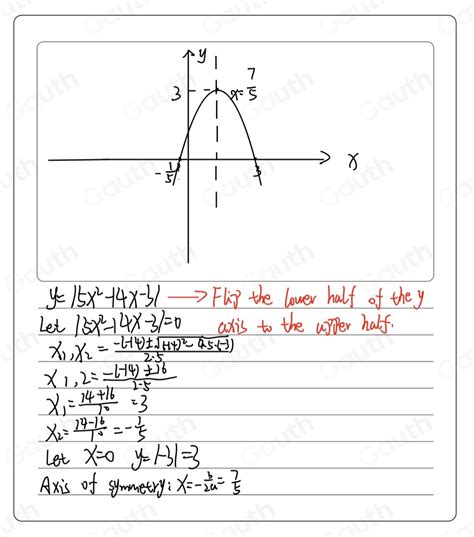 y
3
x=7/5
-1/5
3
x
y=|5x²-14x-3| → Flip the lower half of the y
axis to the upper half.
Let |5x²-14x-3|=0
x₁,x₂ = -(-14)±√(-14)²-(4·5·(-3)) / 2·5
x 1,2 = -(-14)±16 / 2·5
x₁ = 14+16 / 10 = 3
x₂ = 14-16 / 10 = -1/5
Let x=0 y=|-3|=3
Axis of symmetry: x=-b/2a=7/5